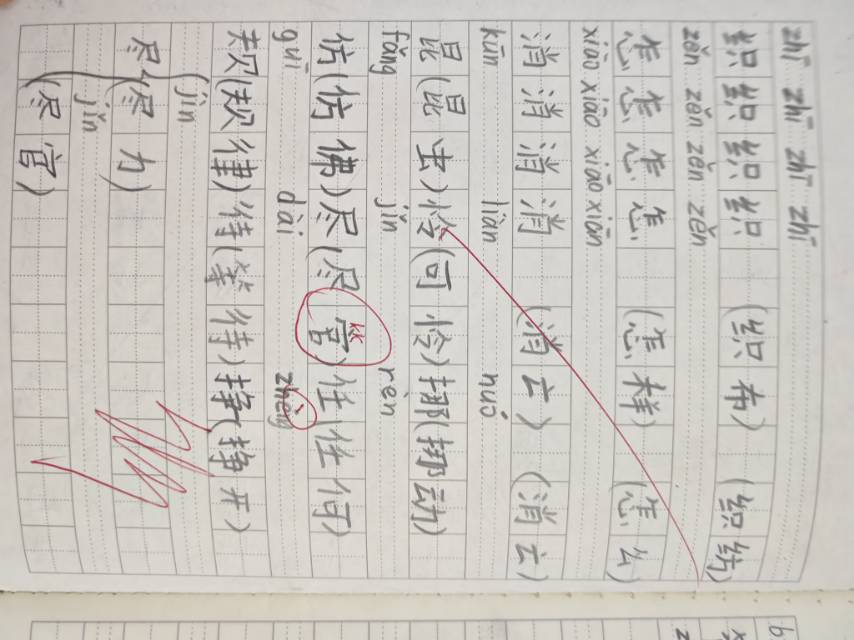 zhī zhī zhī zhī
织织织织 (织布) (织纺)
zěn zěn zěn zěn
怎怎怎怎 (怎样) (怎么)
xiāo xiāo xiāo xiāo
消消消消 (消亡) (消亡)
kūn lián nuó
昆(昆虫)怜(可怜)挪(挪动)
fǎng jǐn rèn
仿(仿佛)尽(尽官)任任何
guī dài zhèng
规(规律)待(等待)挣(挣开)
(jìn
尽(尽力)
jǐn
(尽官)